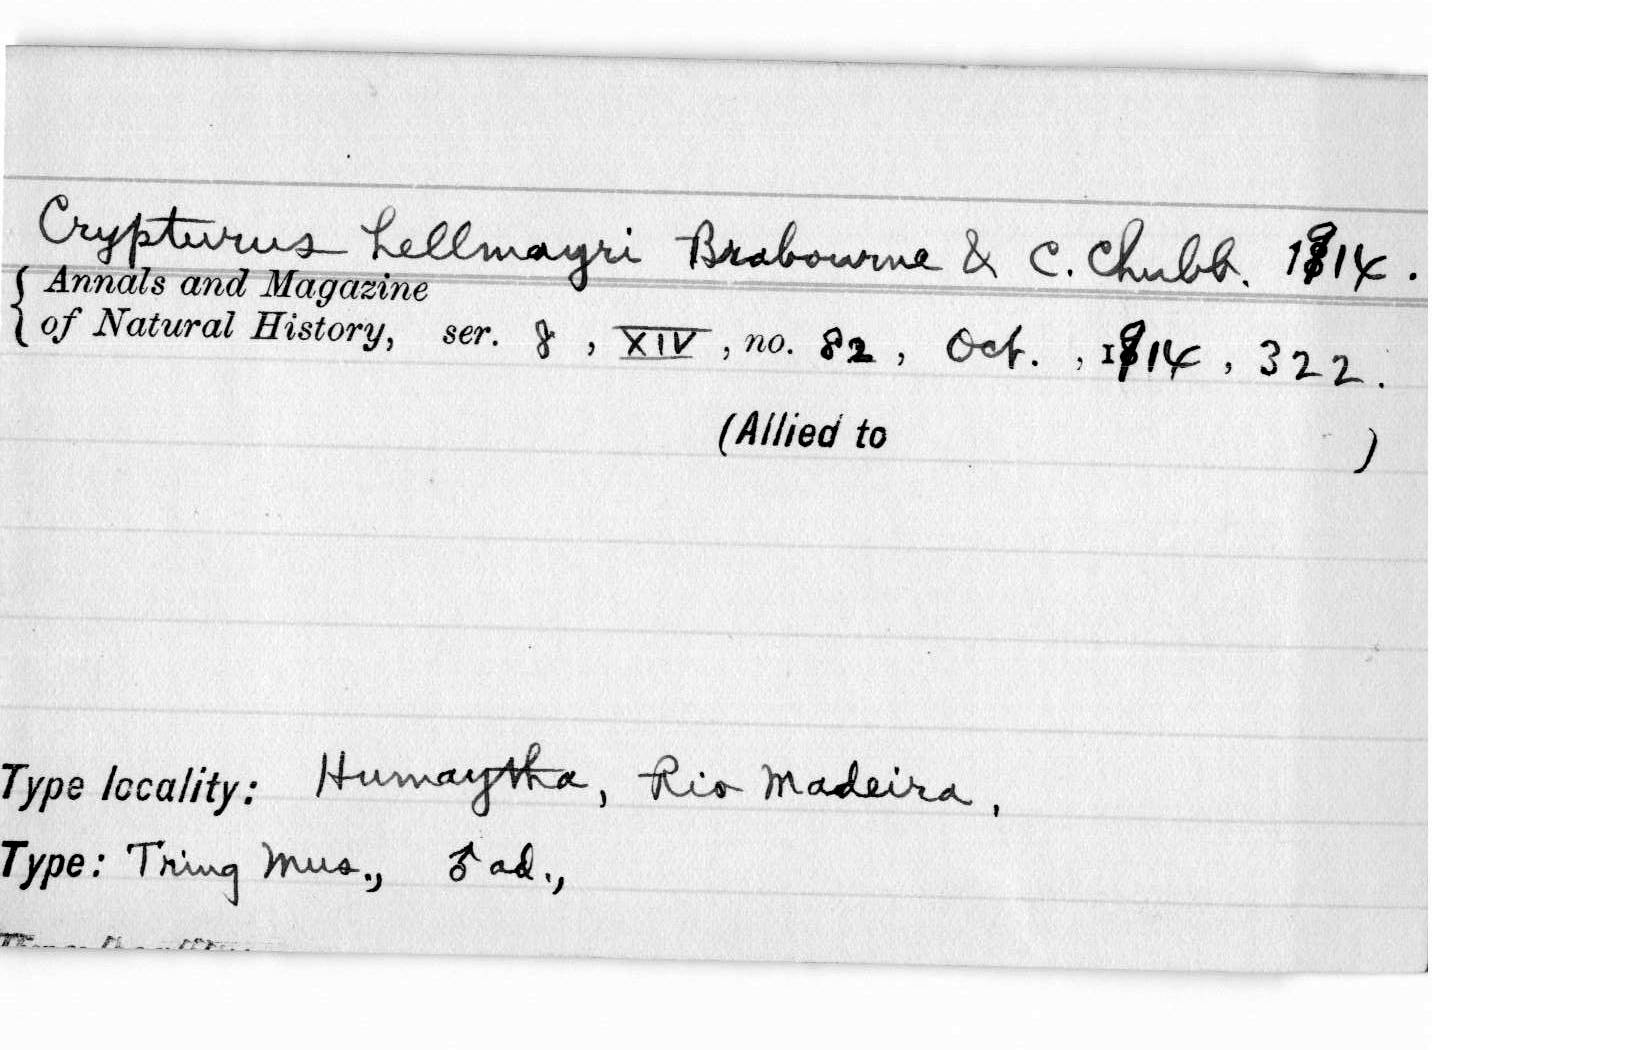 Crypturus hellmayri Brabourne & C. Chubb. 1914.
{ Annals and Magazine
{ of Natural History, ser. 8, XIV, no. 82, Oct., 1914, 322.
(Allied to )
Type locality: Humaytha, Rio Madeira,
Type: Tring Mus., ♂ ad.,